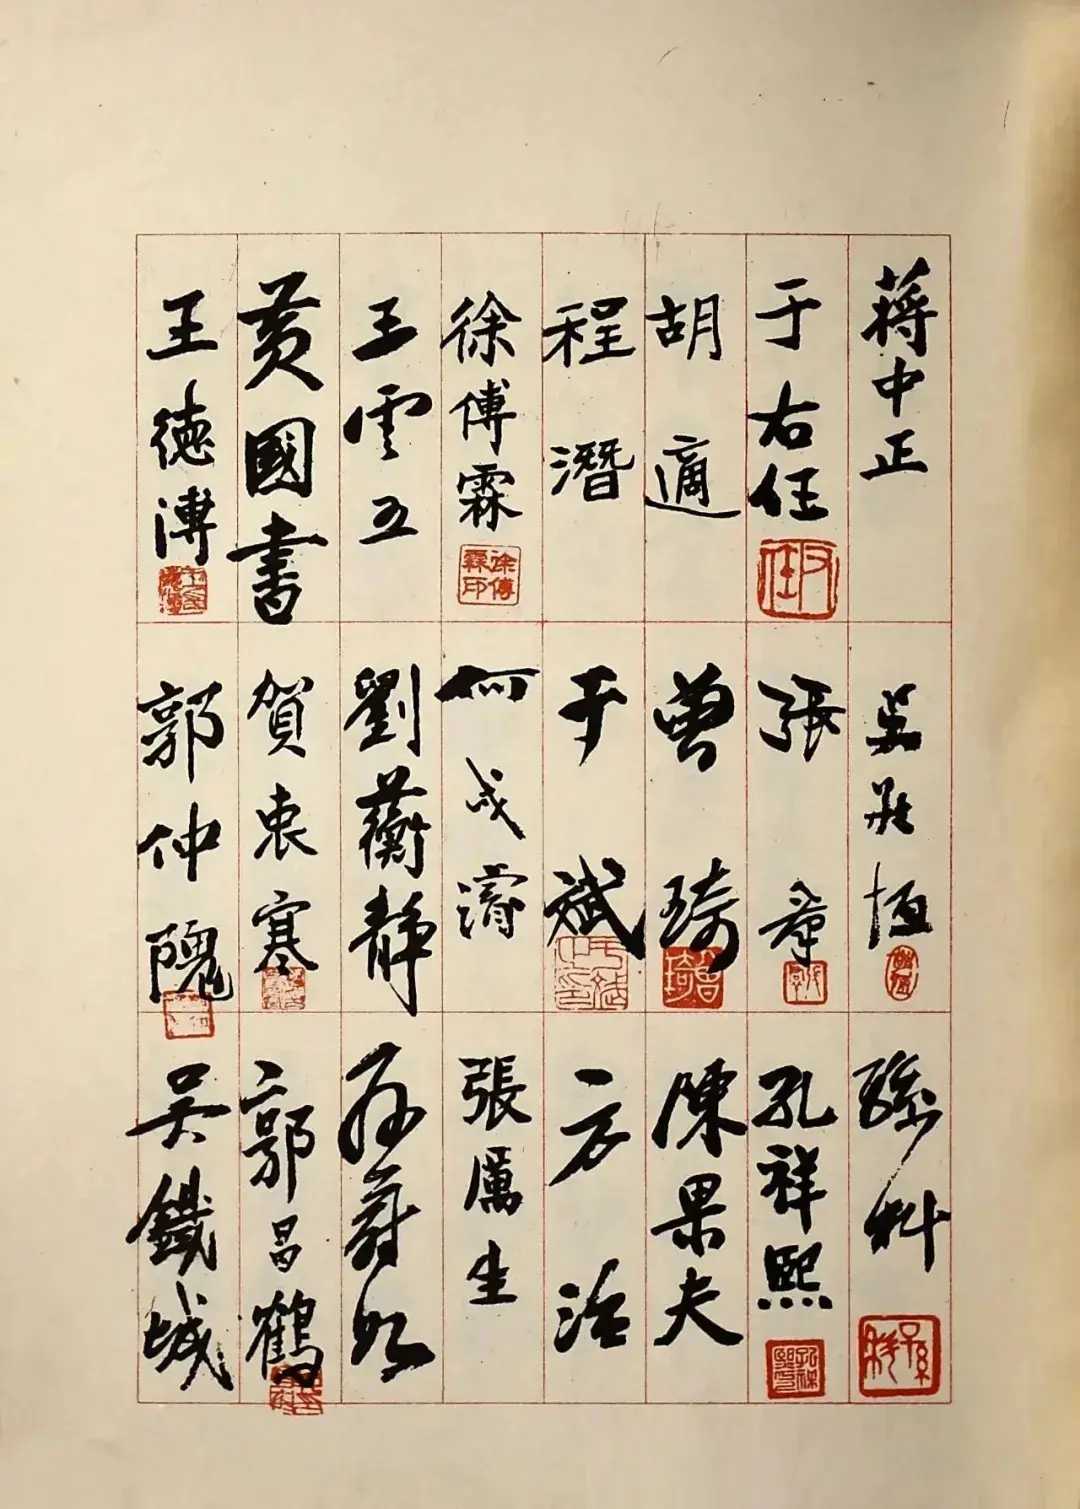 蔣中正
吳敬恆
孫科
孫科
于右任
右任
張羣
孔祥熙
胡適
曾琦
曾琦
陳果夫
程潛
于斌
方治
徐傅霖
徐傅霖印
何成濬
張厲生
王雲五
劉蘅靜
孫蔚如
黃國書
賀衷寒
郭昌鶴
王德溥
郭仲隗
吳鐵城